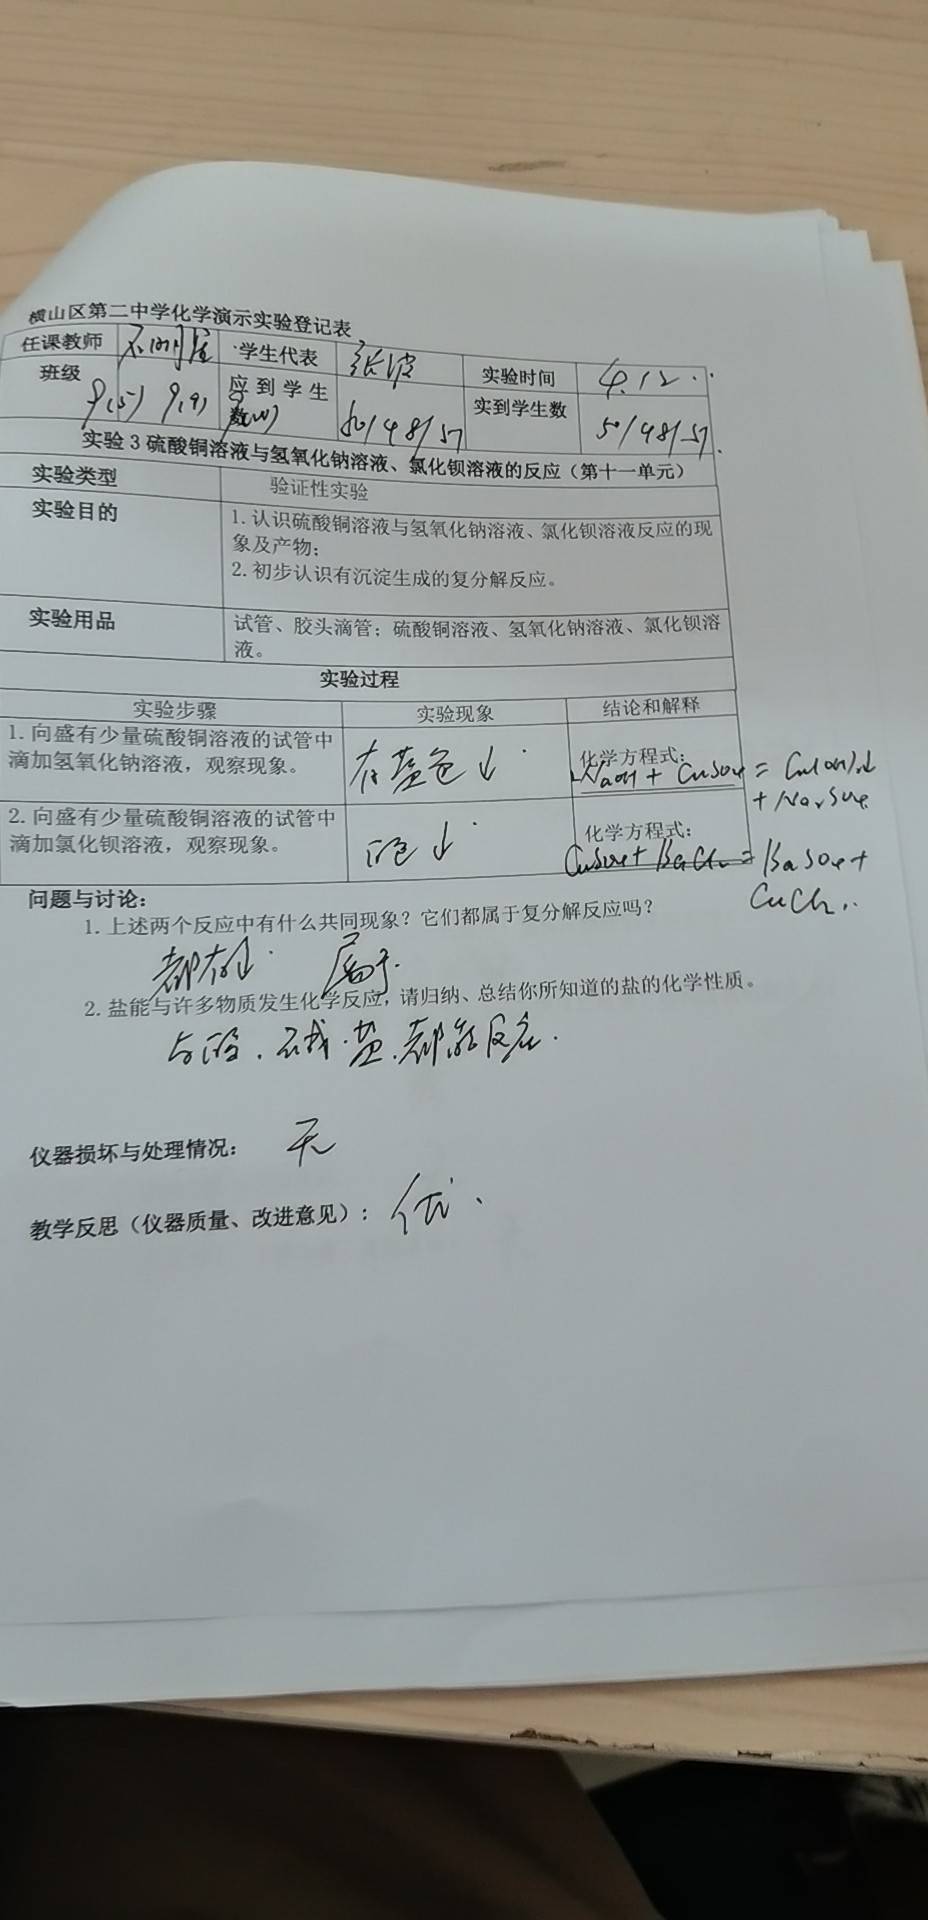 横山区第二中学化学演示实验登记表
任课教师 学生代表 张波 实验时间 4.12.
班级 9(5) 9(9) 应到学生数 50/48/57 实到学生数 50/48/57
实验3 硫酸铜溶液与氢氧化钠溶液、氯化钡溶液的反应（第十一单元）
实验类型 验证性实验
实验目的 1.认识硫酸铜溶液与氢氧化钠溶液、氯化钡溶液反应的现
象及产物；
2.初步认识有沉淀生成的复分解反应。
实验用品 试管、胶头滴管；硫酸铜溶液、氢氧化钠溶液、氯化钡溶
液。
实验过程
实验步骤 实验现象 结论和解释
1.向盛有少量硫酸铜溶液的试管中
滴加氢氧化钠溶液，观察现象。 有蓝色↓ 化学方程式：
2NaOH + CuSO4 = Cu(OH)2↓
+ Na2SO4
2.向盛有少量硫酸铜溶液的试管中
滴加氯化钡溶液，观察现象。 白色↓ 化学方程式：
CuSO4 + BaCl2 = BaSO4 +
CuCl2
问题与讨论：
1.上述两个反应中有什么共同现象？它们都属于复分解反应吗？
都有↓. 属于.
2.盐能与许多物质发生化学反应，请归纳、总结你所知道的盐的化学性质。
与酸.碱.盐.都能反应.
仪器损坏与处理情况： 无
教学反思（仪器质量、改进意见）： 优.